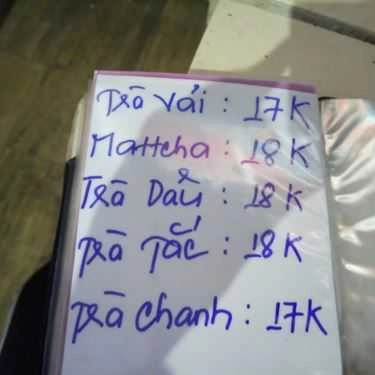 Trà Vải : 17K
Mattcha : 18K
Trà Dâu : 18K
Trà Tắc : 18K
Trà chanh : 17K